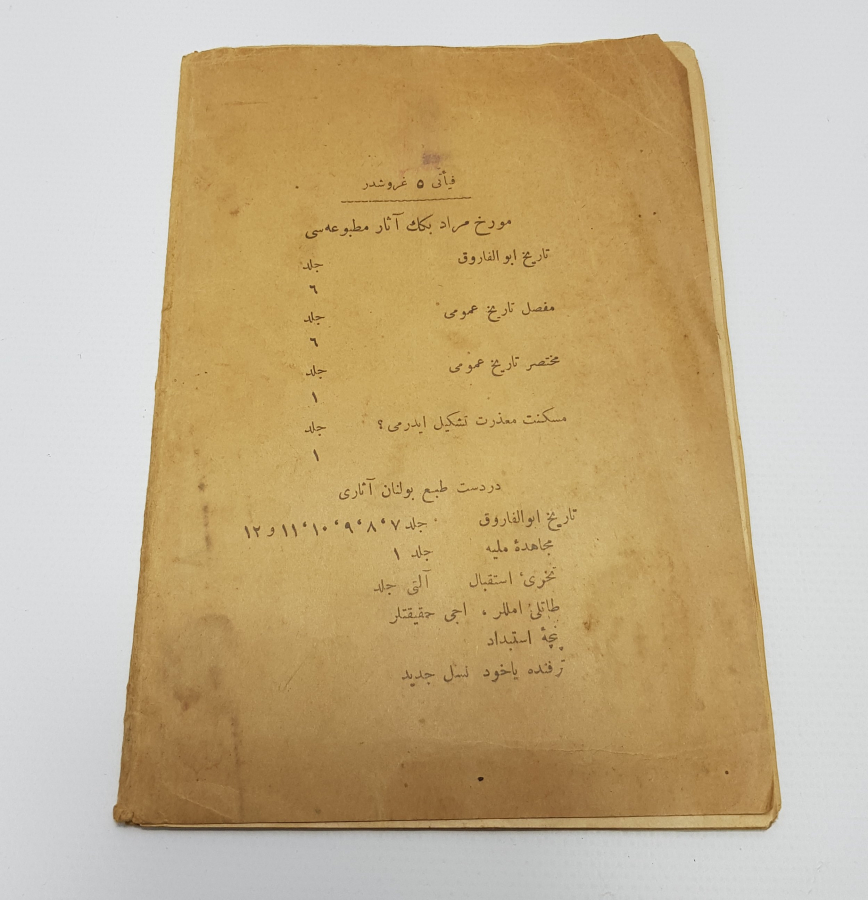 فيأتى ٥ غروشدر
مورخ مراد بكك آثار مطبوعه‌سى
تاريخ ابو الفاروق جلد
٦
مفصل تاريخ عمومى جلد
٦
مختصر تاريخ عمومى جلد
١
مسكنت معذرت تشكيل ايدرمى؟ جلد
١
دردست طبع بولنان آثارى
تاريخ ابوالفاروق جلد ٧،٨،٩،١٠،١١ و ١٢
مجاهدهٔ مليه جلد ١
تحرئ استقبال آلتى جلد
طاتلئ امللر، اجى حقيقتلر
پنچهٔ استبداد
ترفنده ياخود نسل جديد